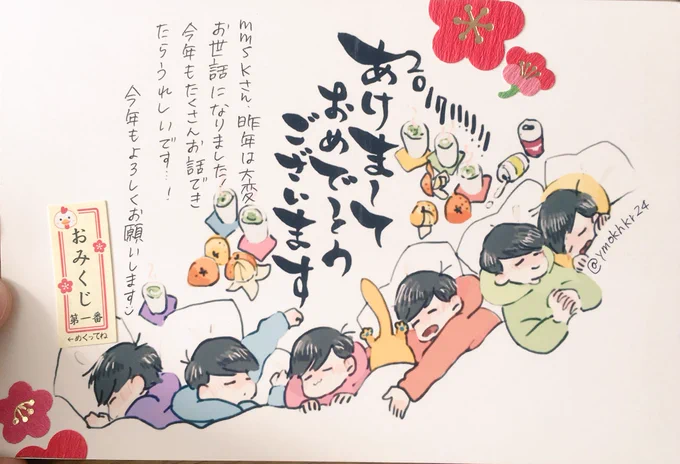 2017!!!!!!!
あけまして
おめでとう
ございます
mmskさん、昨年は大変
お世話になりました!
今年もたくさんお話でき
たらうれしいです…!
今年もよろしくお願いします
おみくじ
第一番
←めくってね
@ymokhkr24